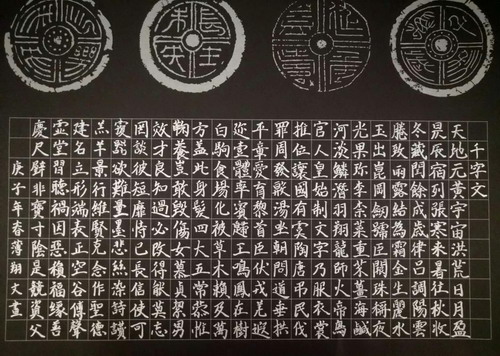 千字文
天地元黃宇宙洪荒日月盈
昃辰宿列張寒來暑往秋收
冬藏閏餘成歲律呂調陽雲
騰致雨露結為霜金生麗水
玉出崑岡劍號巨闕珠稱夜
光果珍李柰菜重芥薑海鹹
河淡鱗潛羽翔龍師火帝鳥
官人皇始制文字乃服衣裳
推位讓國有虞陶唐弔民伐
罪周發殷湯坐朝問道垂拱
平章愛育黎首臣伏戎羌遐
邇壹體率賓歸王鳴鳳在樹
白駒食場化被草木賴及萬
方蓋此身髮四大五常恭惟
鞠養豈敢毀傷女慕貞絜男
效才良知過必改得能莫忘
罔談彼短靡恃己長信使可
覆器欲難量墨悲絲染詩讚
羔羊景行維賢克念作聖德
建名立形端表正空谷傳聲
虛堂習聽禍因惡積福緣善
慶尺璧非寶寸陰是競資父
庚子年春薄翔文畫